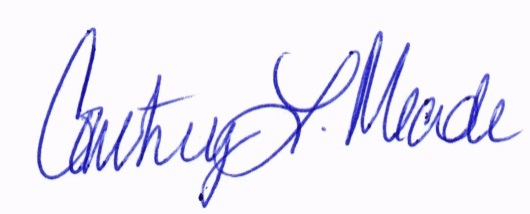 Courtney L. Meade